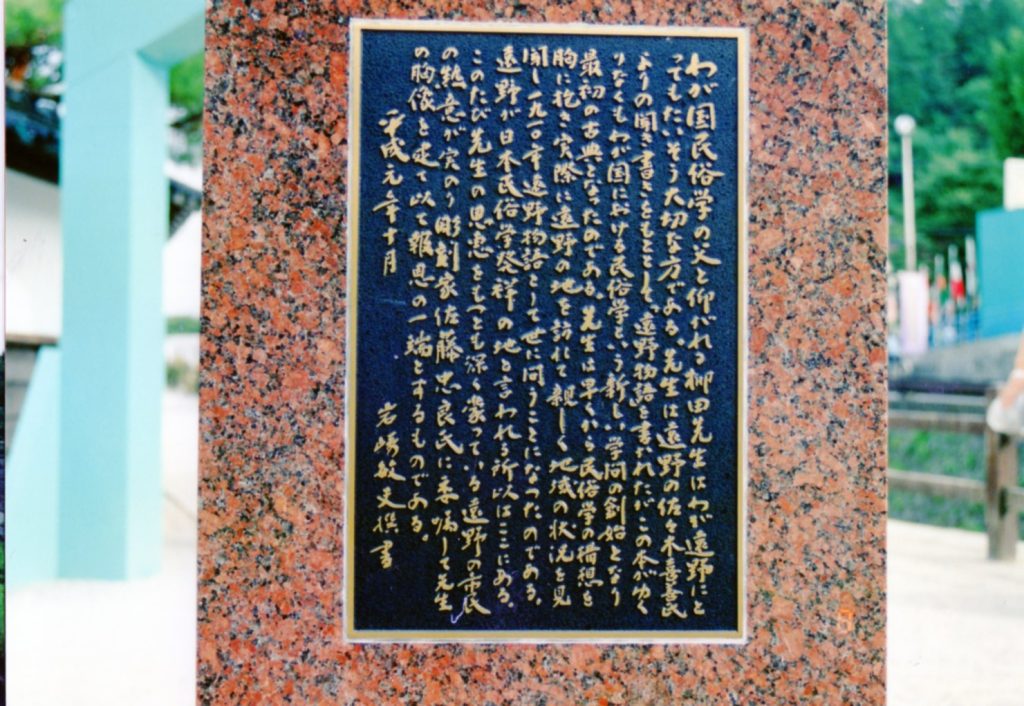 わが国民俗学の父と仰がれる柳田先生はわが遠野にと
ってもたいそう大切な方である。先生は遠野の佐々木喜善氏
よりの聞き書きをもととして、遠野物語を書かれたがこの本がゆく
りなくもわが国における民俗学という新しい学問の創始となり
最初の古典となったのである。先生は早くから民俗学の構想を
胸に抱き実際に遠野の地を訪れて親しく地域の状況を見
聞し一九一〇年遠野物語として世に問うことになったのである。
遠野が日本民俗学発祥の地と言われる所以はここにある。
このたび先生の恩恵をもっとも深く蒙っている遠野の市民
の熱意が実のり彫刻家佐藤忠良氏に委嘱して先生
の胸像を建て以て報恩の一端とするものである。
平成元年十月
岩崎敏夫撰書